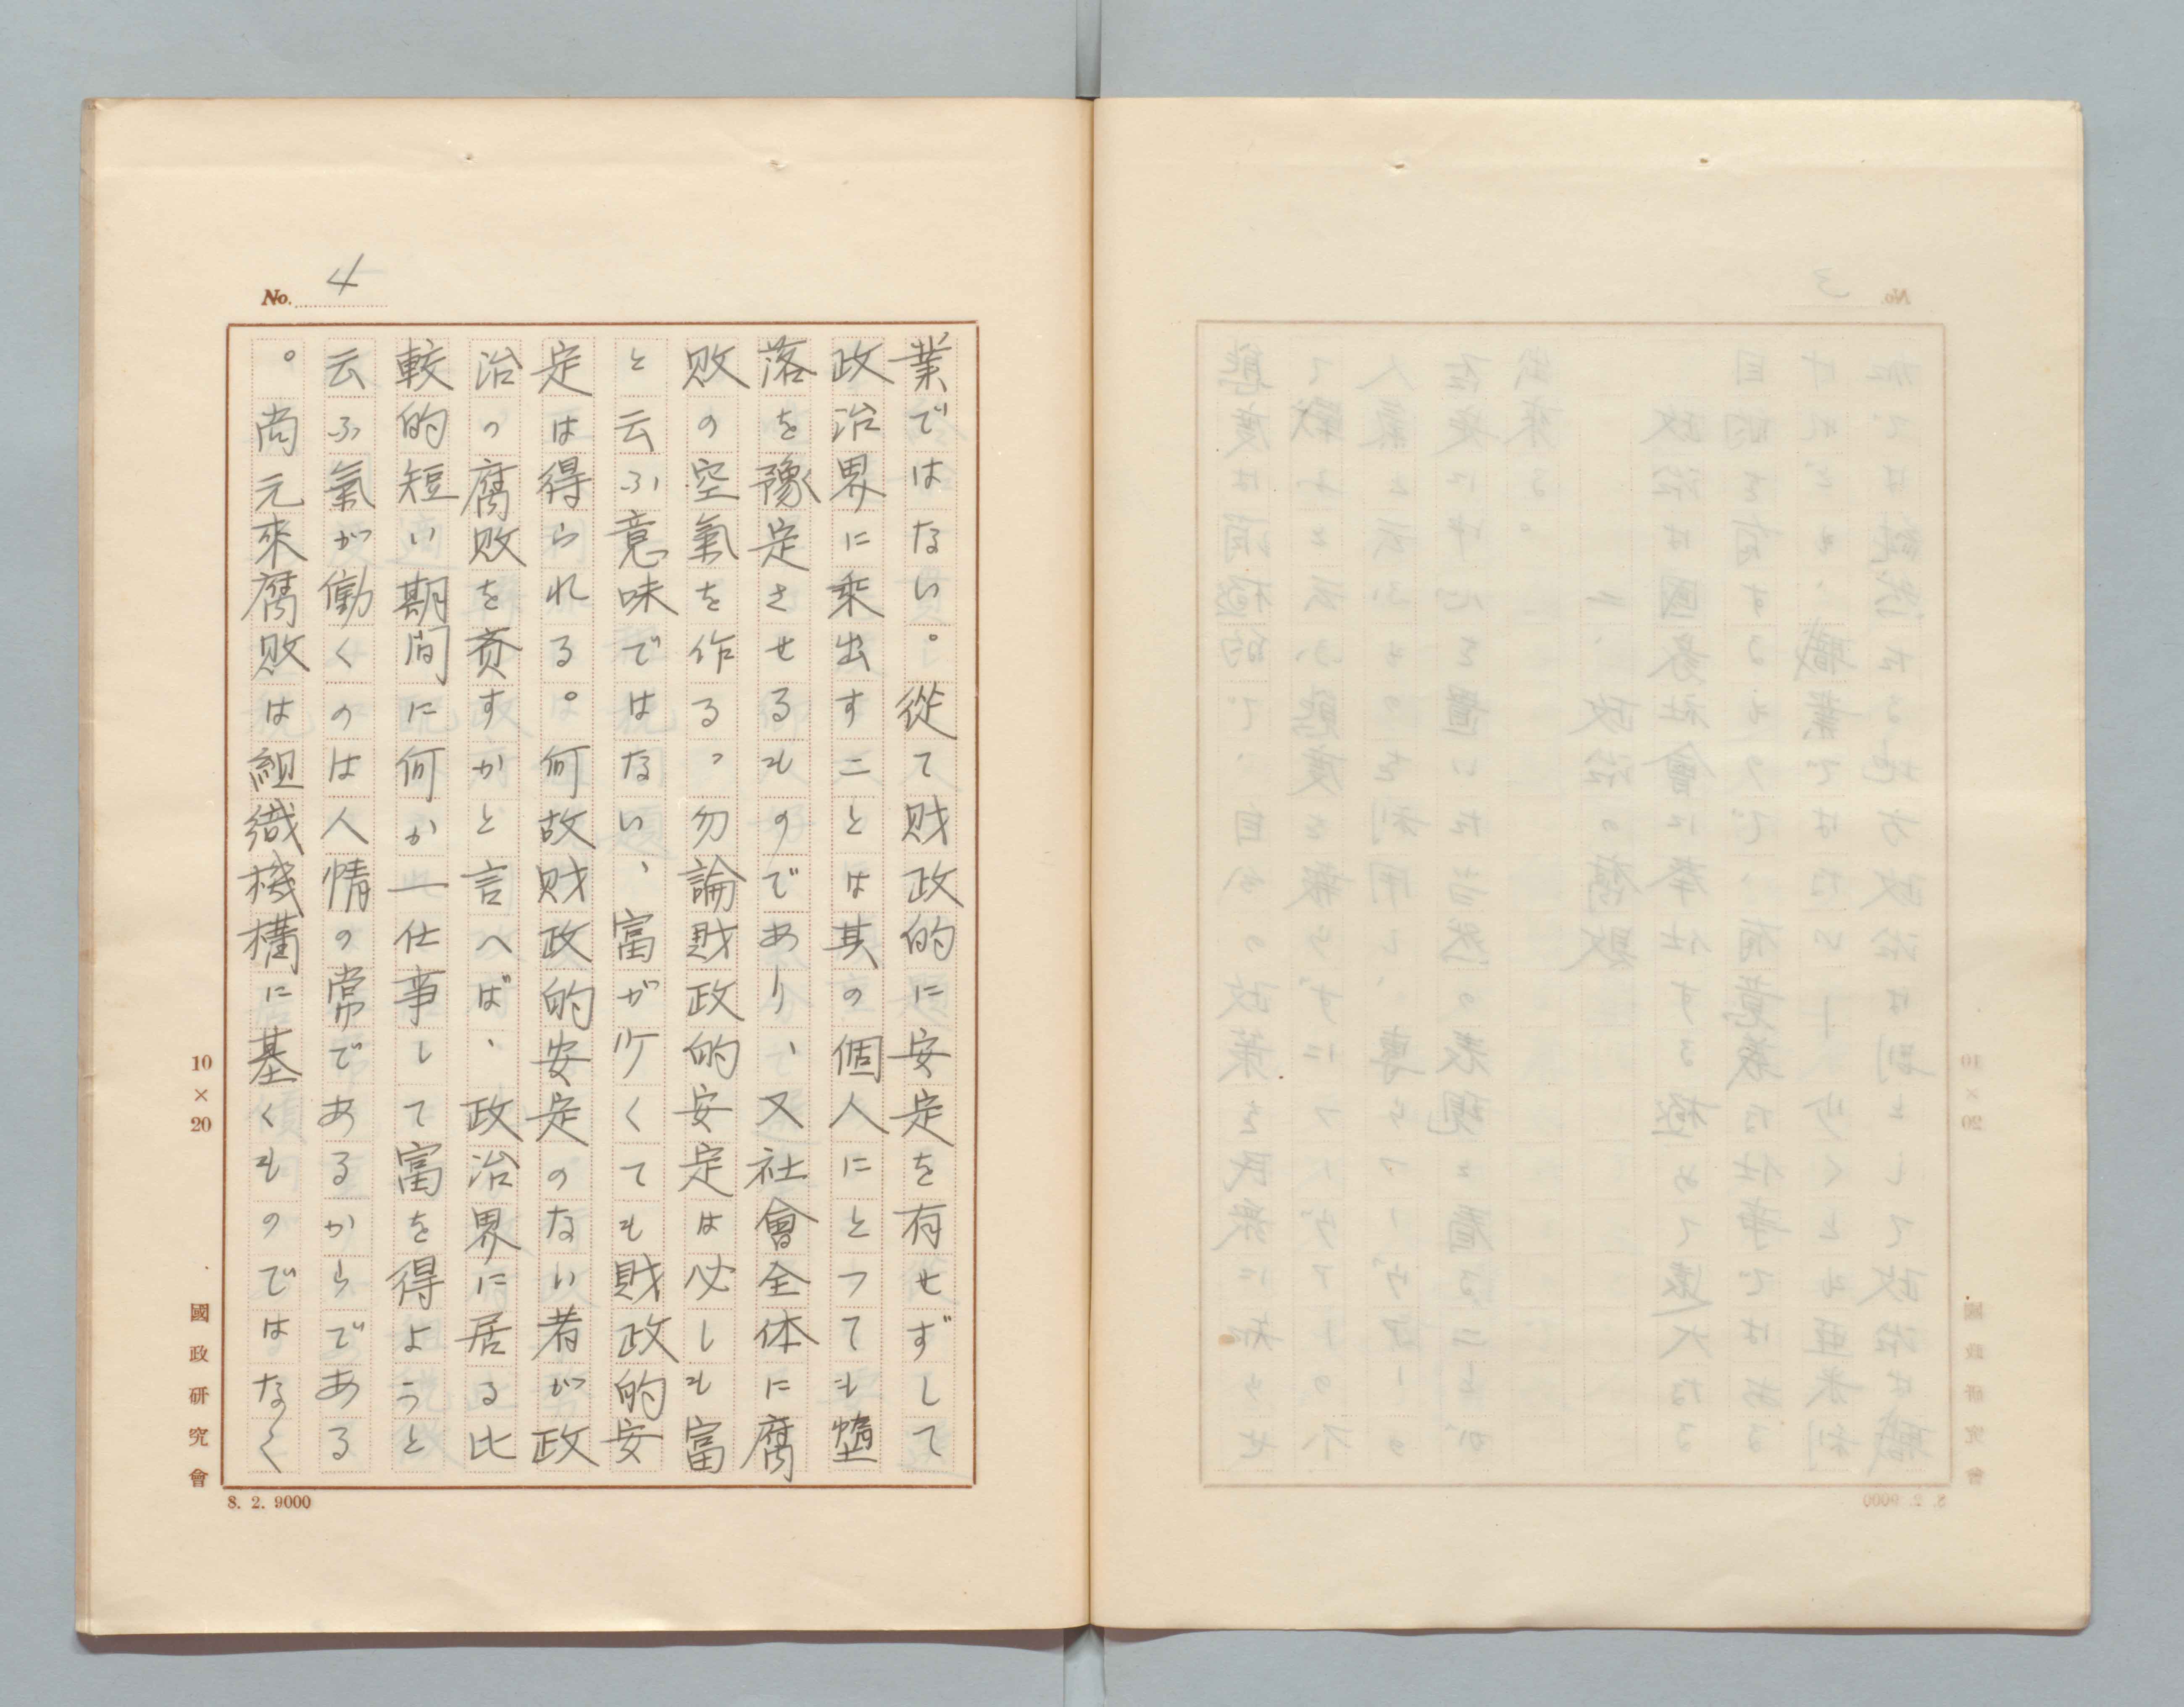 No. 4
業ではない。從て財政的に安定を有せずして
政治界に乘出すことは其の個人にとつても墮
落を豫定させるものであり、又社會全体に腐
敗の空氣を作る。勿論財政的安定は必しも富
と云ふ意味ではない、富が少くても財政的安
定は得られる。何故財政的安定のない者が政
治の腐敗を赍すかと言へば、政治界に居る比
較的短い期間に何か一仕事して富を得ようと
云ふ氣が働くのは人情の常であるからである
。尚元來腐敗は組織機構に基くものではなく
10×20
國政研究會
8. 2. 9000